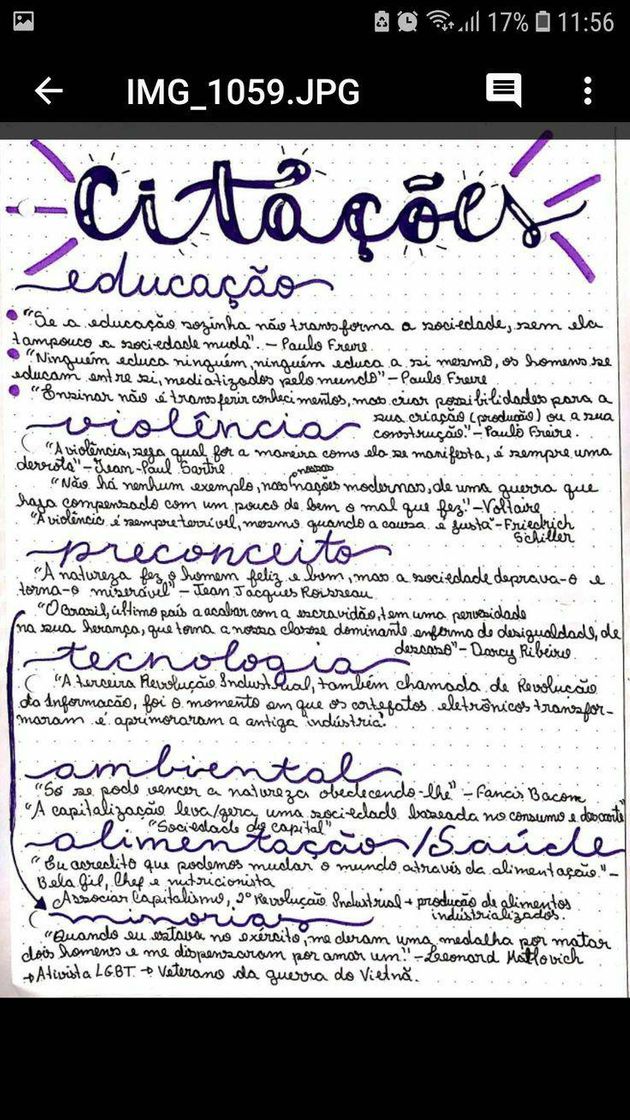 17% 11:56
IMG_1059.JPG
citações
educação
"Se a educação sozinha não transforma a sociedade, sem ela
tampouco a sociedade muda". - Paulo Freire
"Ninguém educa ninguém, ninguém educa a si mesmo, os homens se
educam entre si, mediatizados pelo mundo" - Paulo Freire
"Ensinar não é transferir conhecimentos, mas criar possibilidades para a
sua criação (produção) ou a sua
construção." - Paulo Freire.
violência
"A violência, seja qual for a maneira como ela se manifesta, é sempre uma
derrota" - Jean-Paul Sartre
"Não há nenhum exemplo, nas nossas nações modernas, de uma guerra que
haja compensado com um pouco de bem o mal que fez". - Voltaire
"A violência é sempre terrível, mesmo quando a causa é justa" - Friedrich
Schiller
preconceito
"A natureza fez o homem feliz e bom, mas a sociedade deprava-o e
torna-o miserável" - Jean Jacques Rousseau
"O Brasil, último país a acabar com a escravidão, tem uma pervesidade
na sua herança, que torna a nossa classe dominante enferma de desigualdade, de
descaso" - Darcy Ribeiro
tecnologia
"A terceira Revolução Industrial, também chamada de Revolução
da Informacão, foi o momento em que os artefatos eletrônicos transfor-
maram e aprimoraram a antiga indústria.
ambiental
"Só se pode vencer a natureza obedecendo-lhe" - Fancis Bacom
"A capitalização leva/gera uma sociedade baseada no consumo e descarte"
"Sociedade do capital"
alimentação/Saúde
"Eu acredito que podemos mudar o mundo através da alimentação." -
Bela Gil, Chef e nutricionista
Associar Capitalismo, Revolução Industrial + produção de alimentos
industrializados.
minorias
"Quando eu estava no exército, me deram uma medalha por matar
dois homens e me dispensaram por amar um." - Leonard Matlovich
→ Ativista LGBT → Veterano da guerra do Vietnã.